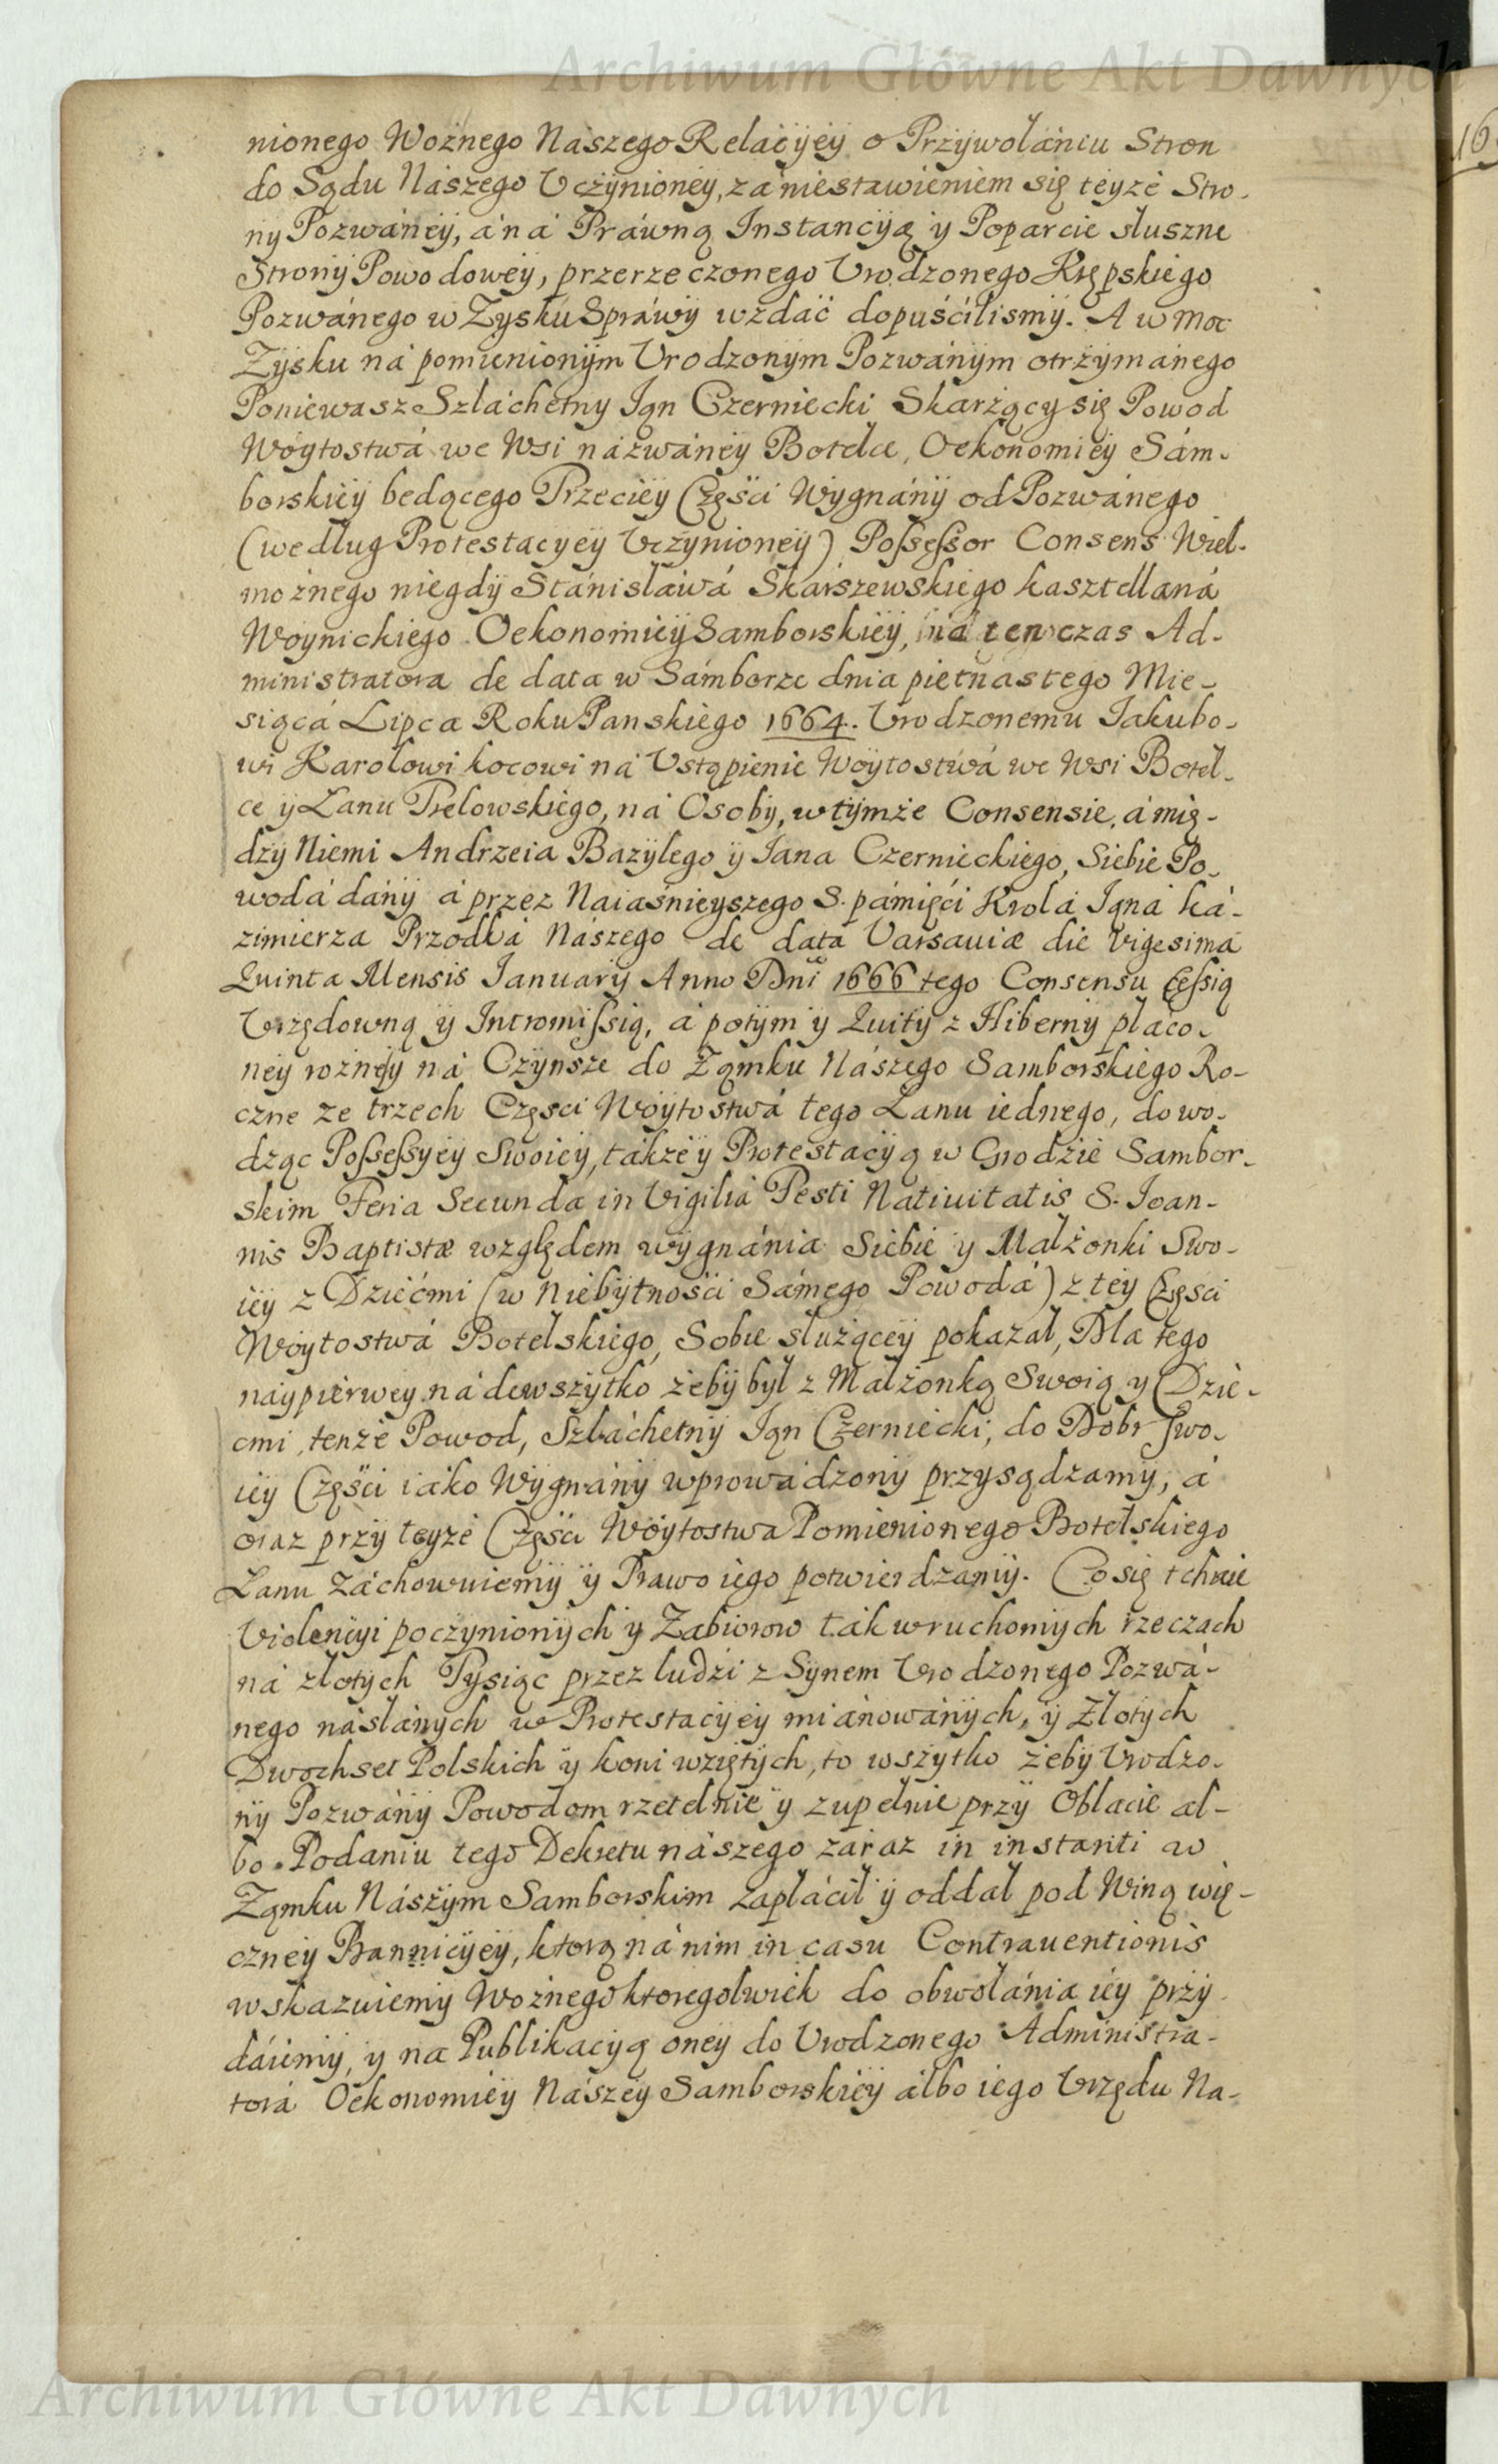 Archiwum Główne Akt Dawnych
nionego Woźnego Nászego Relacÿeÿ o Przÿwołániu Stron
do Sądu Nászego Uczÿnioneÿ, zá niestawieniem się teÿże Stro-
nÿ Pozwáneÿ, á ná Práwną Instancÿą ÿ Poparcie słuszne
Stronÿ Powodoweÿ, przerzeczonego Urodzonego Kępskiego
Pozwánego w Zÿsku Spráwÿ wzdać dopuścilismÿ. A w moc
Zÿsku ná pomienionÿm Urodzonÿm Pozwánÿm otrzÿmánego
Poniewasz Szláchetny Ián Czerniecki Skarżący się Powod
Woÿtostwá we Wsi názwáneÿ Botelce, Oekonomieÿ Sám-
borskieÿ bedącego Trzecieÿ Części Wÿgnánÿ od Pozwánego
(według Protestacyeÿ Uczÿnioneÿ) Possessor Consens Wiel-
możnego niegdÿ Stánisłáwá Skárszewskiego kasztellaná
Woÿnickiego Oekonomieÿ Samborskieÿ, ná ten czas Ad-
ministratora de data w Sámborze dnia pietnastego Mie-
siącá Lipca Roku Panskiego 1664. Urodzonemu Iakubo-
wi Karolowi kocowi ná Ustąpienie Woÿtostwá we Wsi Botel-
ce ÿ Łanu Trelowskiego, ná Osobÿ, w tÿmże Consensie, á mię-
dzÿ Niemi Andrzeia Bazÿlego ÿ Iana Czernieckiego, Siebie Po-
wodá dánÿ á przez Naiaśnieyszego S. pámięći Krolá Iąná Ká-
zimierza Przodká Nászego de data Varsaviæ die vigesima
Quinta Mensis Ianuarÿ Anno Dni 1666 tego Consensu Cessią
Urzędowną ÿ Intromissią, á potÿm ÿ Quitÿ z Hibernÿ płáco-
neÿ rożneÿ ná Czÿnsze do Zamku Nászego Samborskiego Ro-
czne ze trzech Częsci Woÿtostwá tego Łanu iednego, dowo-
dząc Possessyeÿ Swoieÿ, tákże ÿ Protestacÿą w Grodzie Sambor-
skim Feria Secunda in Vigilia Festi Nativitatis S. Ioan-
nis Baptistæ względem wÿgnánia Siebie ÿ Małżonki Swo-
ieÿ z Dziećmi (w Niebÿtnośći Sámego Powodá) z teÿ Części
Woÿtostwá Botelskiego, Sobie służąceÿ pokazał, Dla tego
naÿpierwey náde wszÿtko żebÿ bÿł z Małżonką Swoią ÿ Dzie-
cmi, tenże Powod, Szláchetnÿ Ián Czerniecki, do Dobr swo-
ieÿ Części iáko Wÿgnánÿ wprowádzonÿ przÿsądzamÿ, á
oraz przÿ teÿże Części Woÿtostwa Pomienionego Botelskiego
Łanu záchowuiemÿ ÿ Prawo iego potwierdzamÿ. Co się tchnie
Violencÿi poczÿnionÿch ÿ Zabiorow ták w ruchomÿch rzeczach
ná złotÿch Tÿsiąc przez ludzi z Sÿnem Urodzonego Pozwá-
nego násłánÿch w Protestacÿeÿ miánowánÿch, ÿ Złotÿch
Dwochset Polskich ÿ koni wziętÿch, to wszÿtko żebÿ Urodzo-
nÿ Pozwánÿ Powodom rzetelnie ÿ zupełnie przÿ Oblacie al-
bo Podaniu tego Dekretu nászego záraz in instanti w
Zamku Nászÿm Samborskim zápłácił ÿ oddał pod Winą wie-
czneÿ Bannicÿeÿ, ktorą ná nim in casu Contraventionis
wskazuiemÿ Woźnego ktoregolwiek do obwołánia ieÿ przÿ
dáiemÿ, ÿ na Publikacÿą oneÿ do Urodzonego Administra-
torá Oekonomieÿ Nászeÿ Samborskieÿ álbo iego Urzędu Na-
Archiwum Główne Akt Dawnych